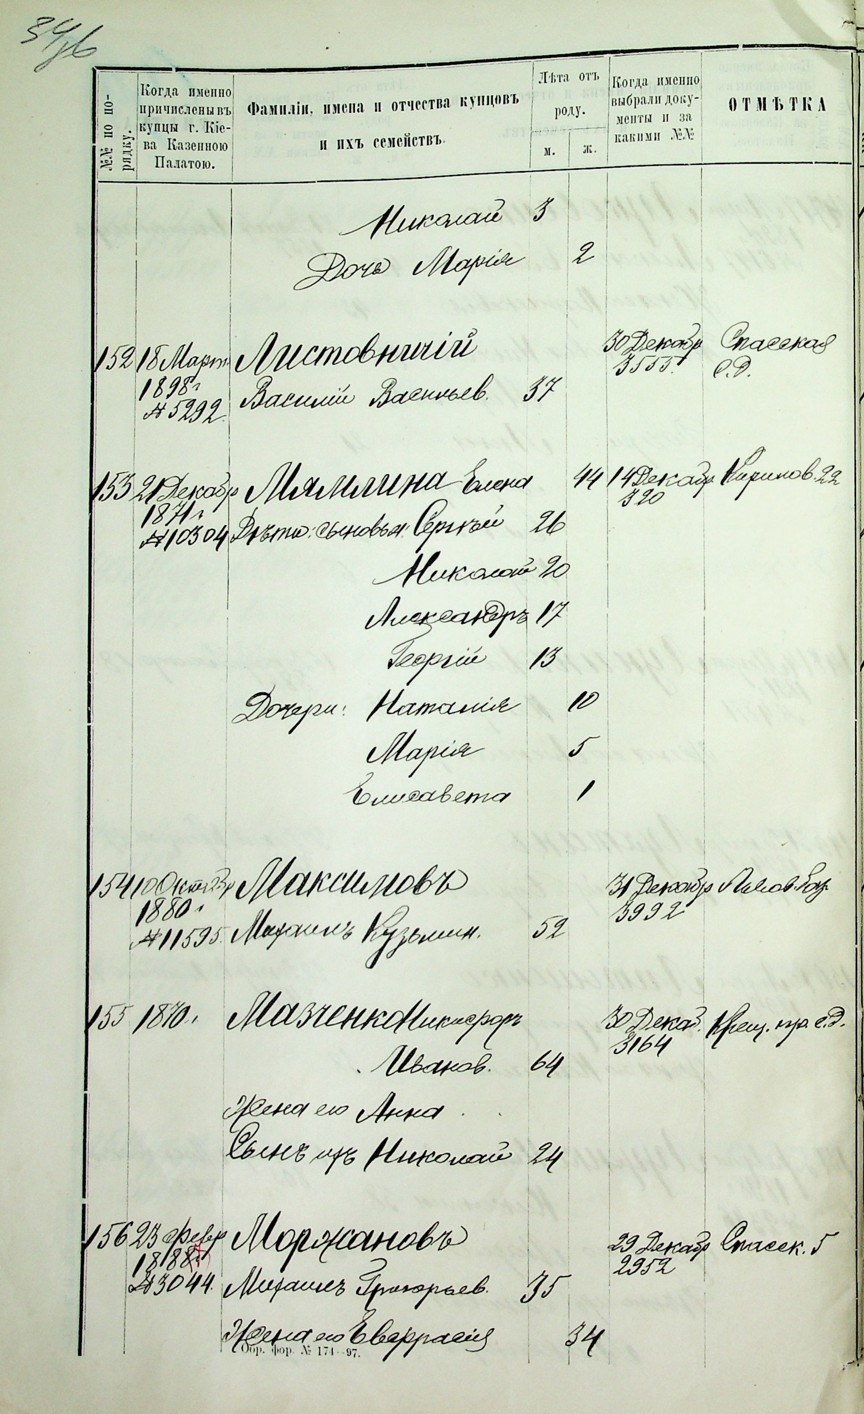 №№ по порядку.
Когда именно причислены въ купцы г. Кіева Казенною Палатою.
Фамиліи, имена и отчества купцовъ и ихъ семействъ.
Лѣта отъ роду.
м.
ж.
Когда именно выбрали документы и за какими №№
ОТМѢТКА
Николай 3
Дочь Марія 2
152 18 Март. Листовничій 30 Декабр Спасская
1898 г 3555 с.д.
№ 5292 Василій Васильев. 37
153 21 Декабр Мямлина Елена 44 14 Декабр Кирилов. 22
1871 г 320
№ 10304 Дѣти: сыновья: Сергѣй 26
Николай 20
Александръ 17
Георгій 13
Дочери: Наталія 10
Марія 5
Елисавета 1
154 10 Октябр Максимовъ 31 Декабр
1880 г 3992
№ 11595 Михаилъ Кузьмин. 52
155 1870 г Мазченко Никифоръ 30 Декаб. Крещ. с.д.
3164
Иванов. 64
Жена его Анна
Сынъ ихъ Николай 24
156 23 Февр Моржановъ 29 Декабр Спасск. 5
2952
№ 3044 Михаилъ Григорьев. 35
Жена его Евфрасія 34
Обр. фор. № 174—97.